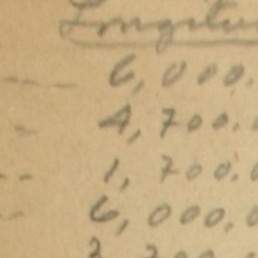 Longitu
6,000.
4,700.0
1,700.0
6,000.0